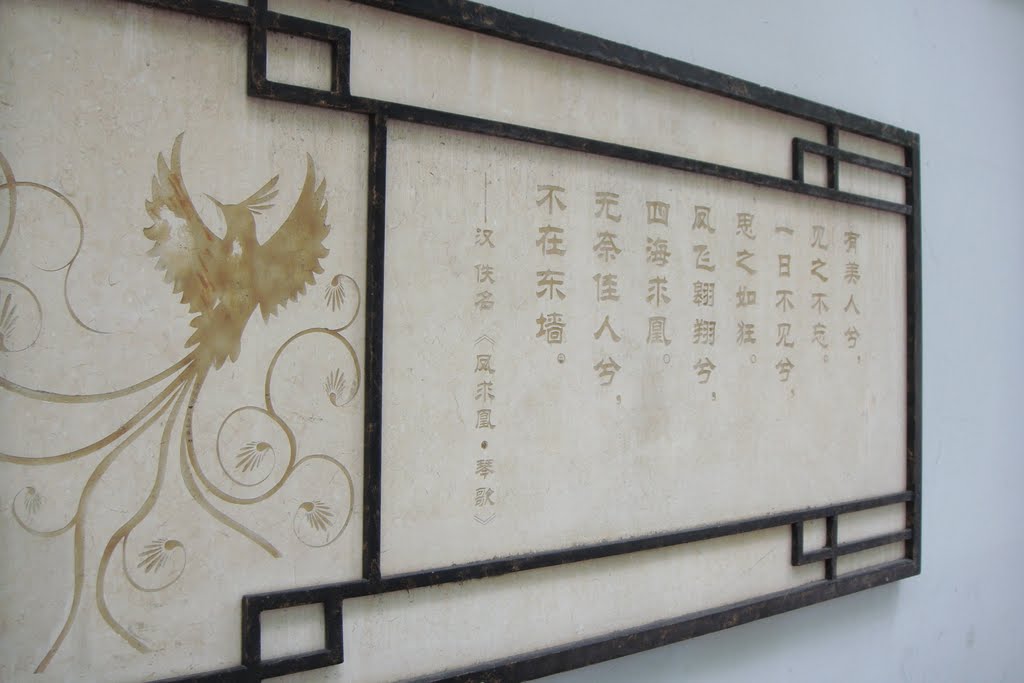 有美人兮，
见之不忘。
一日不见兮，
思之如狂。
凤飞翱翔兮，
四海求凰。
无奈佳人兮，
不在东墙。
—汉 佚名《凤求凰·琴歌》